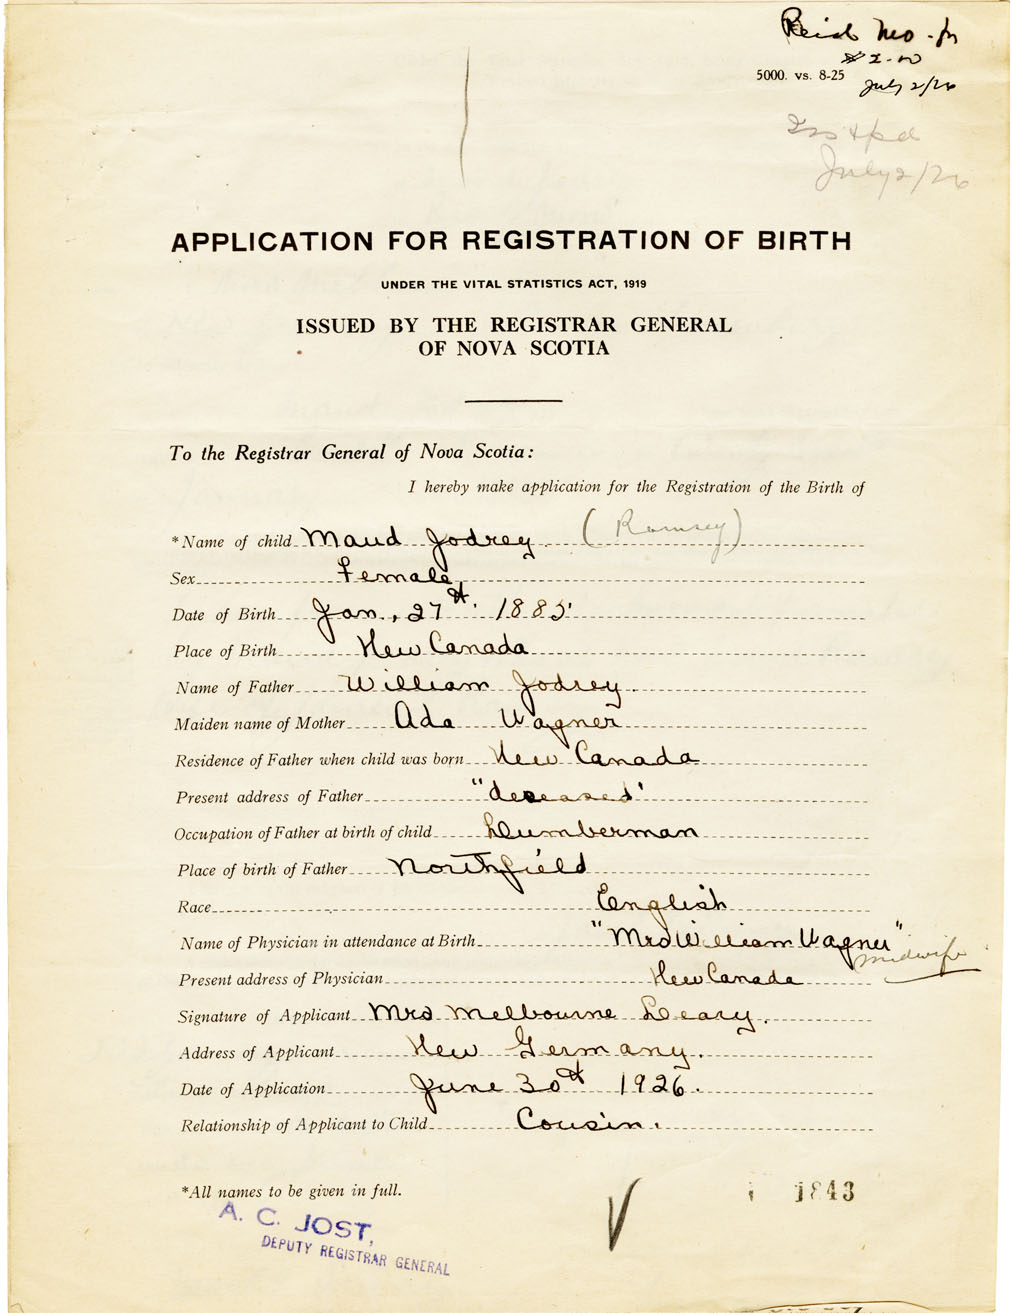 Reid
5000. vs. 8-25
July 2/26
July 2/26
APPLICATION FOR REGISTRATION OF BIRTH
UNDER THE VITAL STATISTICS ACT, 1919
ISSUED BY THE REGISTRAR GENERAL
OF NOVA SCOTIA
To the Registrar General of Nova Scotia:
I hereby make application for the Registration of the Birth of
*Name of child Maud Jodrey (Ramsey)
Sex Female
Date of Birth Jan, 27th 1885
Place of Birth New Canada
Name of Father William Jodrey
Maiden name of Mother Ada Wagner
Residence of Father when child was born New Canada
Present address of Father "deseased"
Occupation of Father at birth of child Lumberman
Place of birth of Father Northfield
Race English
Name of Physician in attendance at Birth "Mrs William Wagner"
midwife
Present address of Physician New Canada
Signature of Applicant Mrs Melbourne Leary.
Address of Applicant New Germany.
Date of Application June 30th 1926.
Relationship of Applicant to Child Cousin.
*All names to be given in full.
1843
A. C. JOST,
DEPUTY REGISTRAR GENERAL